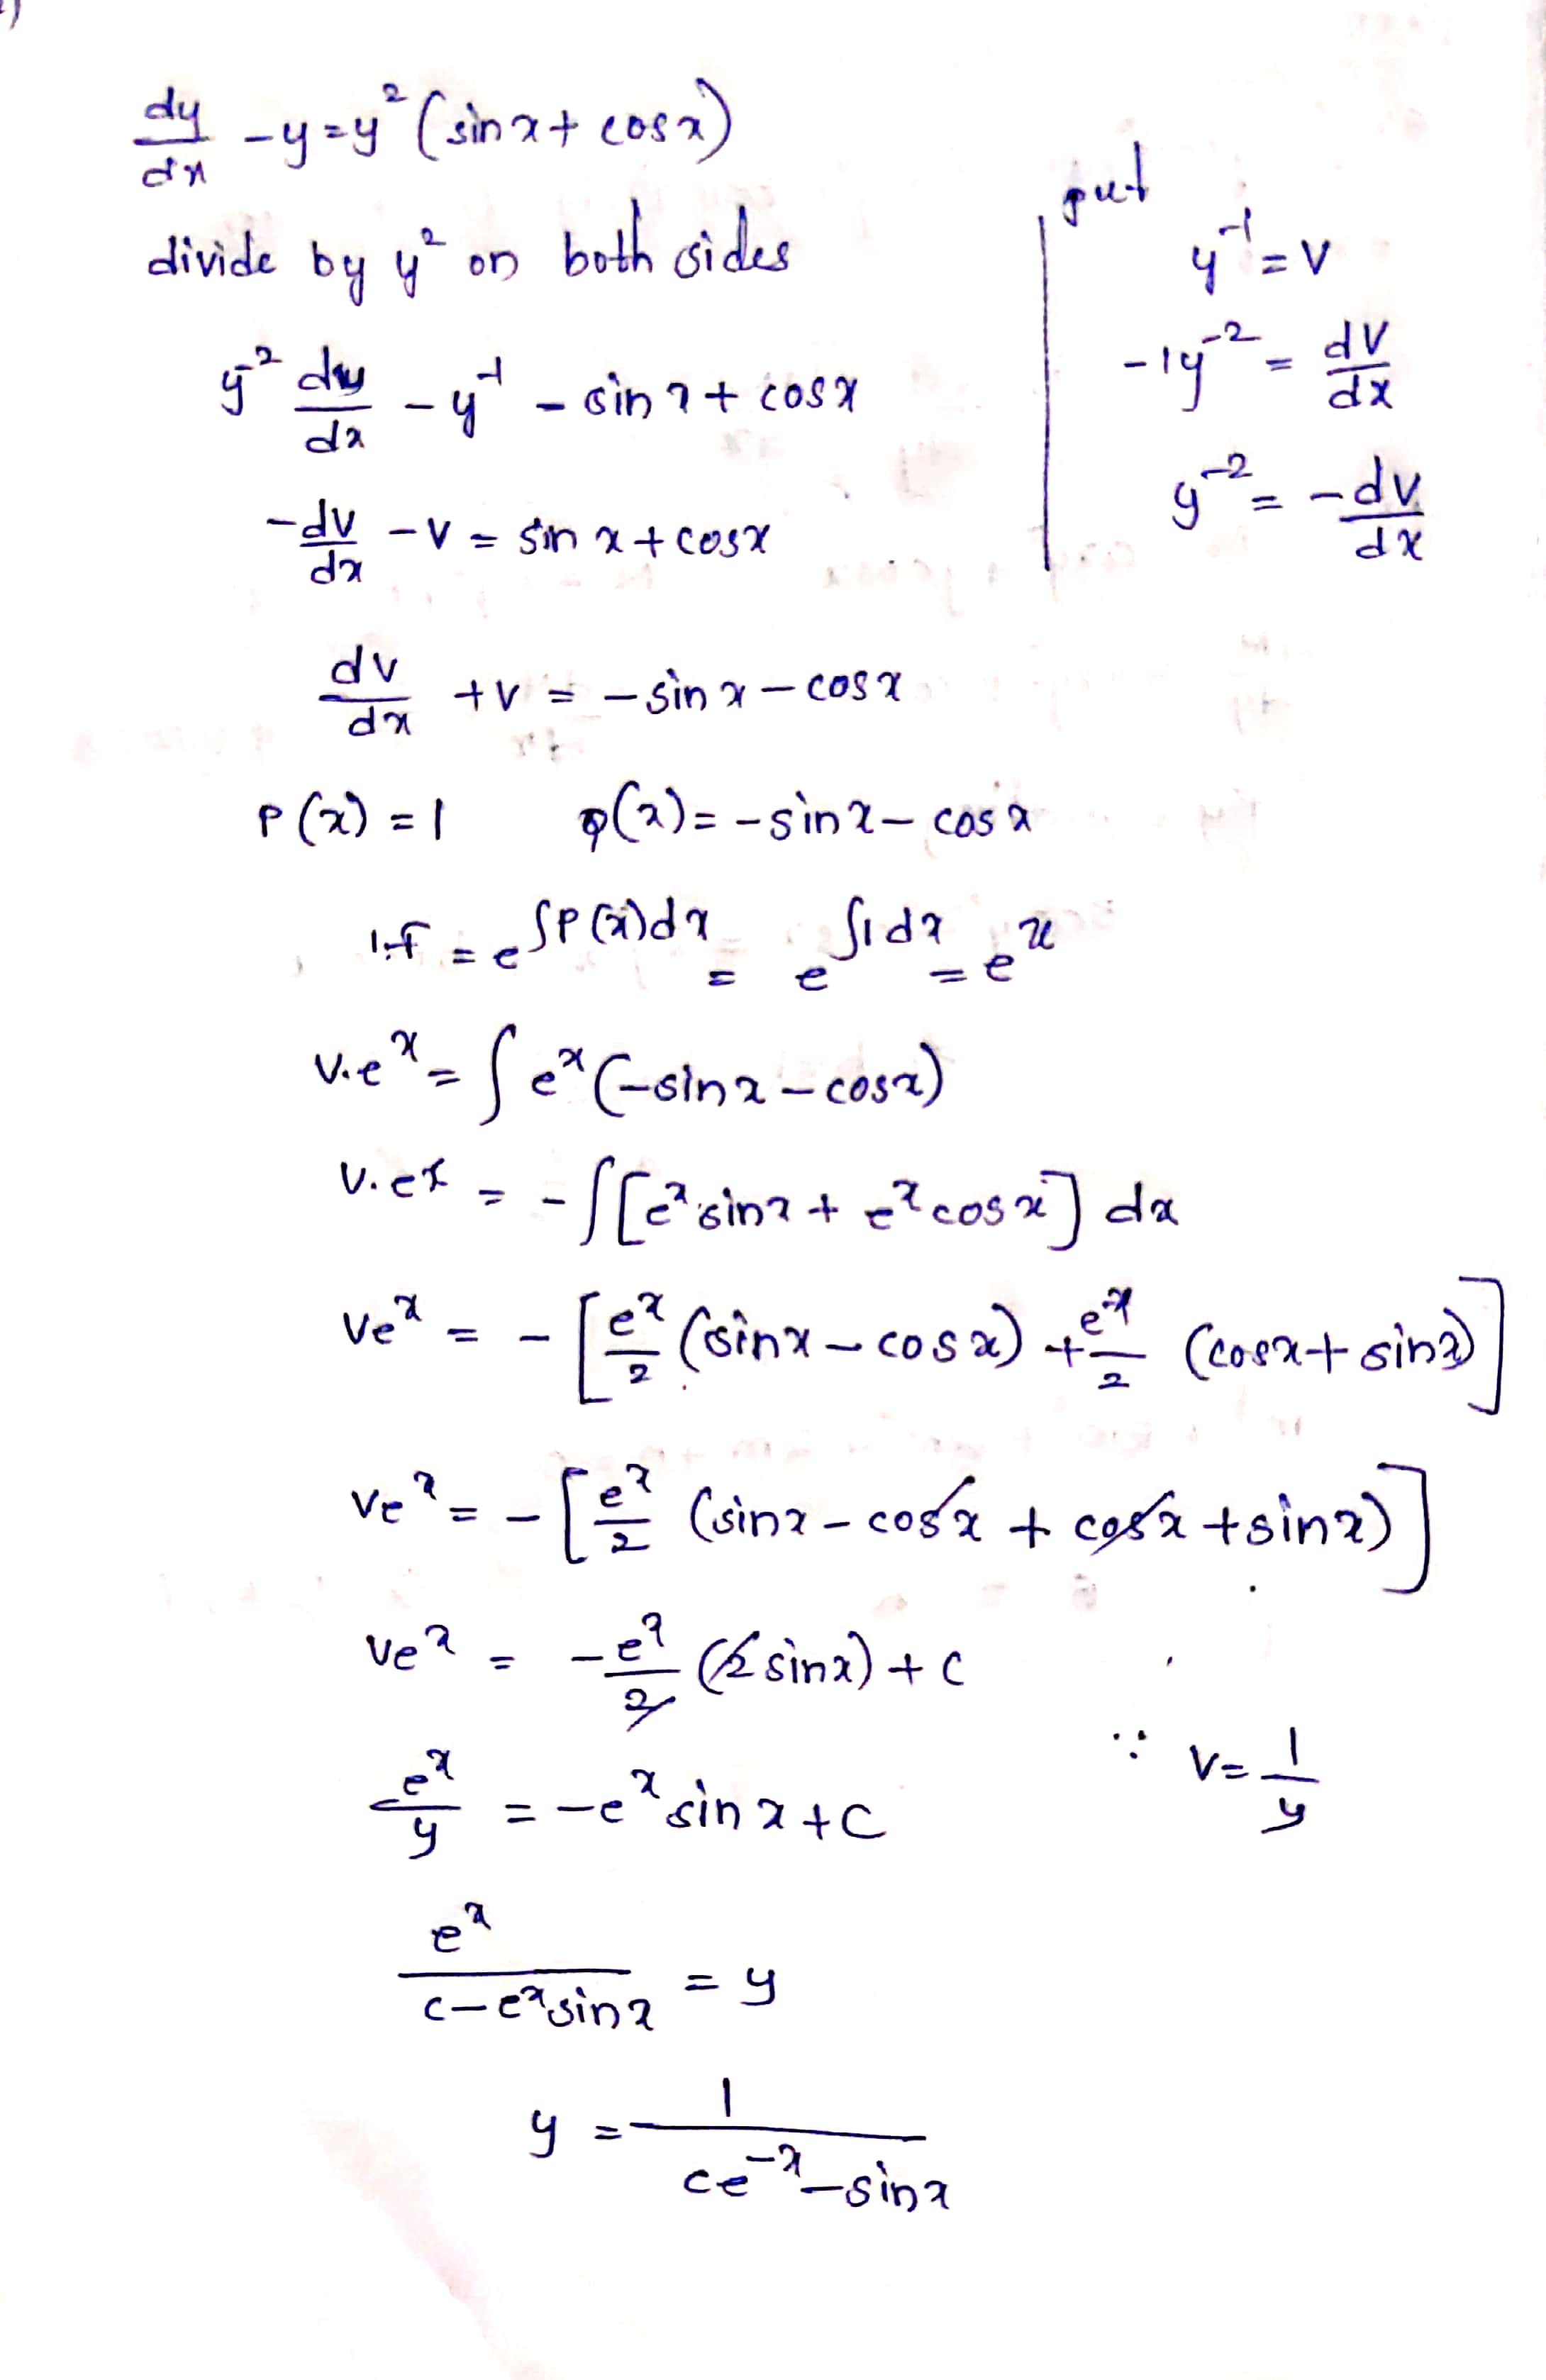 dy/dx - y = y² (sin x + cos x)
divide by y² on both sides
y⁻² dy/dx - y⁻¹ - sin x + cos x
-dv/dx - v = sin x + cos x
put
y⁻¹ = v
-1y⁻² = dv/dx
y⁻² = -dv/dx
dv/dx + v = - sin x - cos x
P(x) = 1 Q(x) = - sin x - cos x
I.f = e^∫P(x)dx = e^∫1dx = e^x
v.e^x = ∫ e^x (-sin x - cos x)
v.e^x = -∫[e^x sin x + e^x cos x] dx
ve^x = -[e^x/2 (sin x - cos x) + e^x/2 (cos x + sin x)]
ve^x = -[e^x/2 (sin x - cos x + cos x + sin x)]
ve^x = -e^x/2 (2 sin x) + c
e^x/y = -e^x sin x + c ∵ v = 1/y
e^x/(c - e^x sin x) = y
y = 1/(ce^-x - sin x)